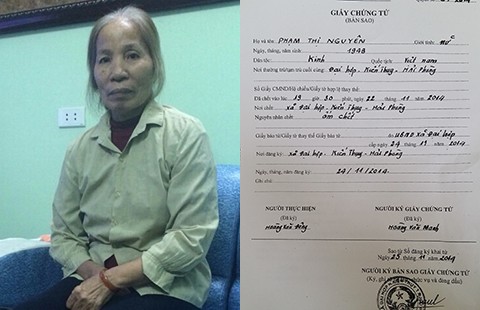 GIẤY CHỨNG TỬ
(BẢN SAO)
Họ và tên: PHẠM THỊ NGUYÊN Giới tính: nữ
Ngày, tháng, năm sinh: 1948
Dân tộc: Kinh Quốc tịch: Việt nam
Nơi thường trú/tạm trú cuối cùng: Đại hợp - Kiến Thụy - Hải Phòng
Số Giấy CMND/Hộ chiếu/Giấy tờ hợp lệ thay thế:
Đã chết vào lúc: 19 giờ 30 phút, 22 11 2014
Nơi chết: xã Đại hợp - Kiến Thụy - Hải Phòng
Nguyên nhân chết: ốm chết
Giấy báo tử/Giấy tờ thay Giấy báo tử: do UBND xã Đại hợp
cấp ngày 24 tháng 11 2014
Nơi đăng ký: xã Đại hợp - Kiến Thụy - Hải Phòng
Ngày, tháng, năm đăng ký: 24/11/2014
Ghi chú:
NGƯỜI THỰC HIỆN NGƯỜI KÝ GIẤY CHỨNG TỬ
(Đã ký) (Đã ký)
Hoàng Văn Hoàng Văn Manh
Sao từ Sổ đăng ký khai tử
Ngày 25 tháng 11 năm 2014
NGƯỜI KÝ BẢN SAO GIẤY CHỨNG TỬ
(Ký, ghi chức vụ và đóng dấu)